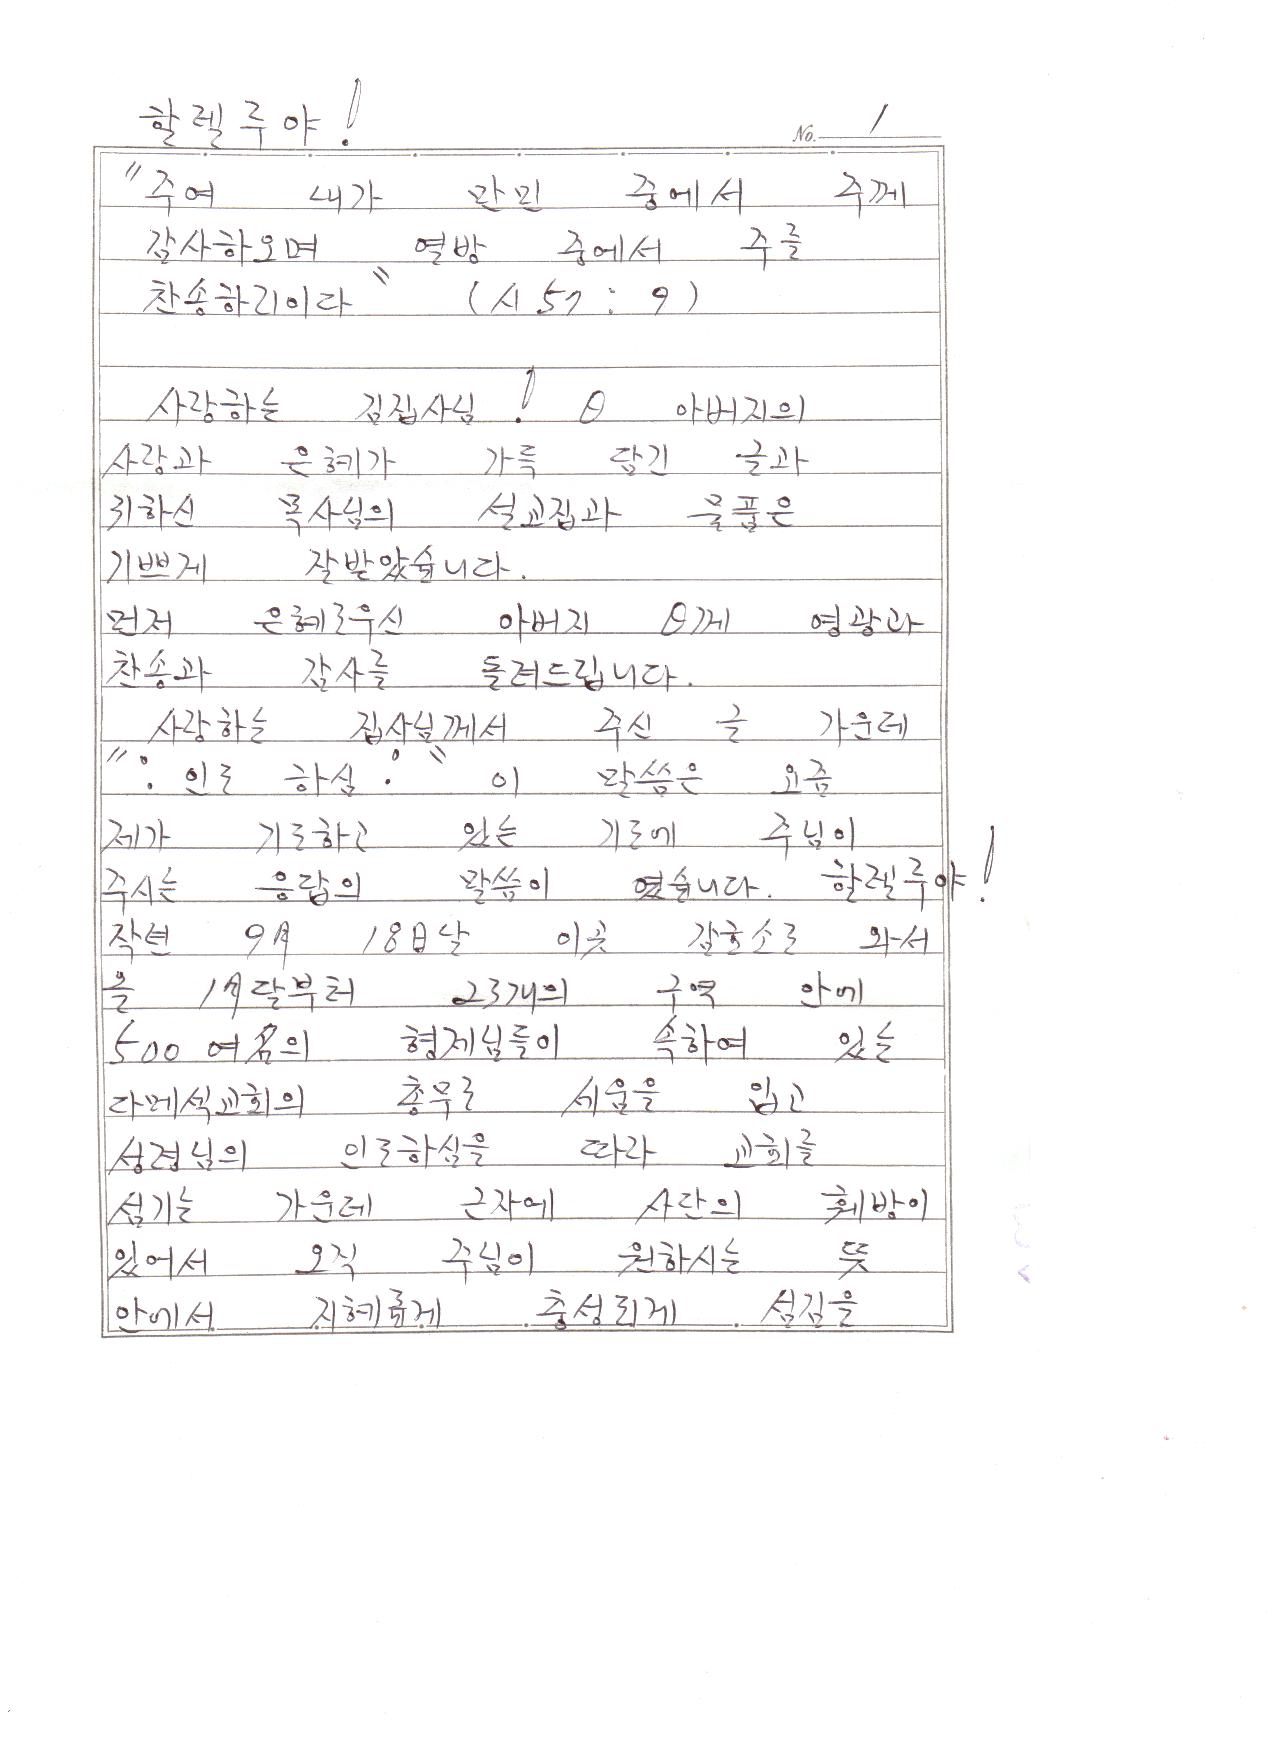 할렐루야!
No. 1
"주여 내가 만민 중에서 주께
감사하오며 열방 중에서 주를
찬송하리이다" (시 57:9)
사랑하는 김집사님! θ 아버지의
사랑과 은혜가 가득 담긴 글과
귀하신 목사님의 설교집과 물품은
기쁘게 잘받았습니다.
먼저 은혜로우신 아버지 θ께 영광과
찬송과 감사를 돌려드립니다.
사랑하는 집사님께서 주신 글 가운데
": 인도 하심 :" 이 말씀은 요즘
제가 기도하고 있는 기도에 주님이
주시는 응답의 말씀이 였습니다. 할렐루야!
작년 9月 18日날 이곳 감호소로 와서
올 1月달부터 23개의 구역 안에
500여名의 형제님들이 속하여 있는
다메섹교회의 총무로 세움을 입고
성령님의 인도하심을 따라 교회를
섬기는 가운데 근자에 사단의 훼방이
있어서 오직 주님이 원하시는 뜻
안에서 지혜롭게 충성되게 섬김을